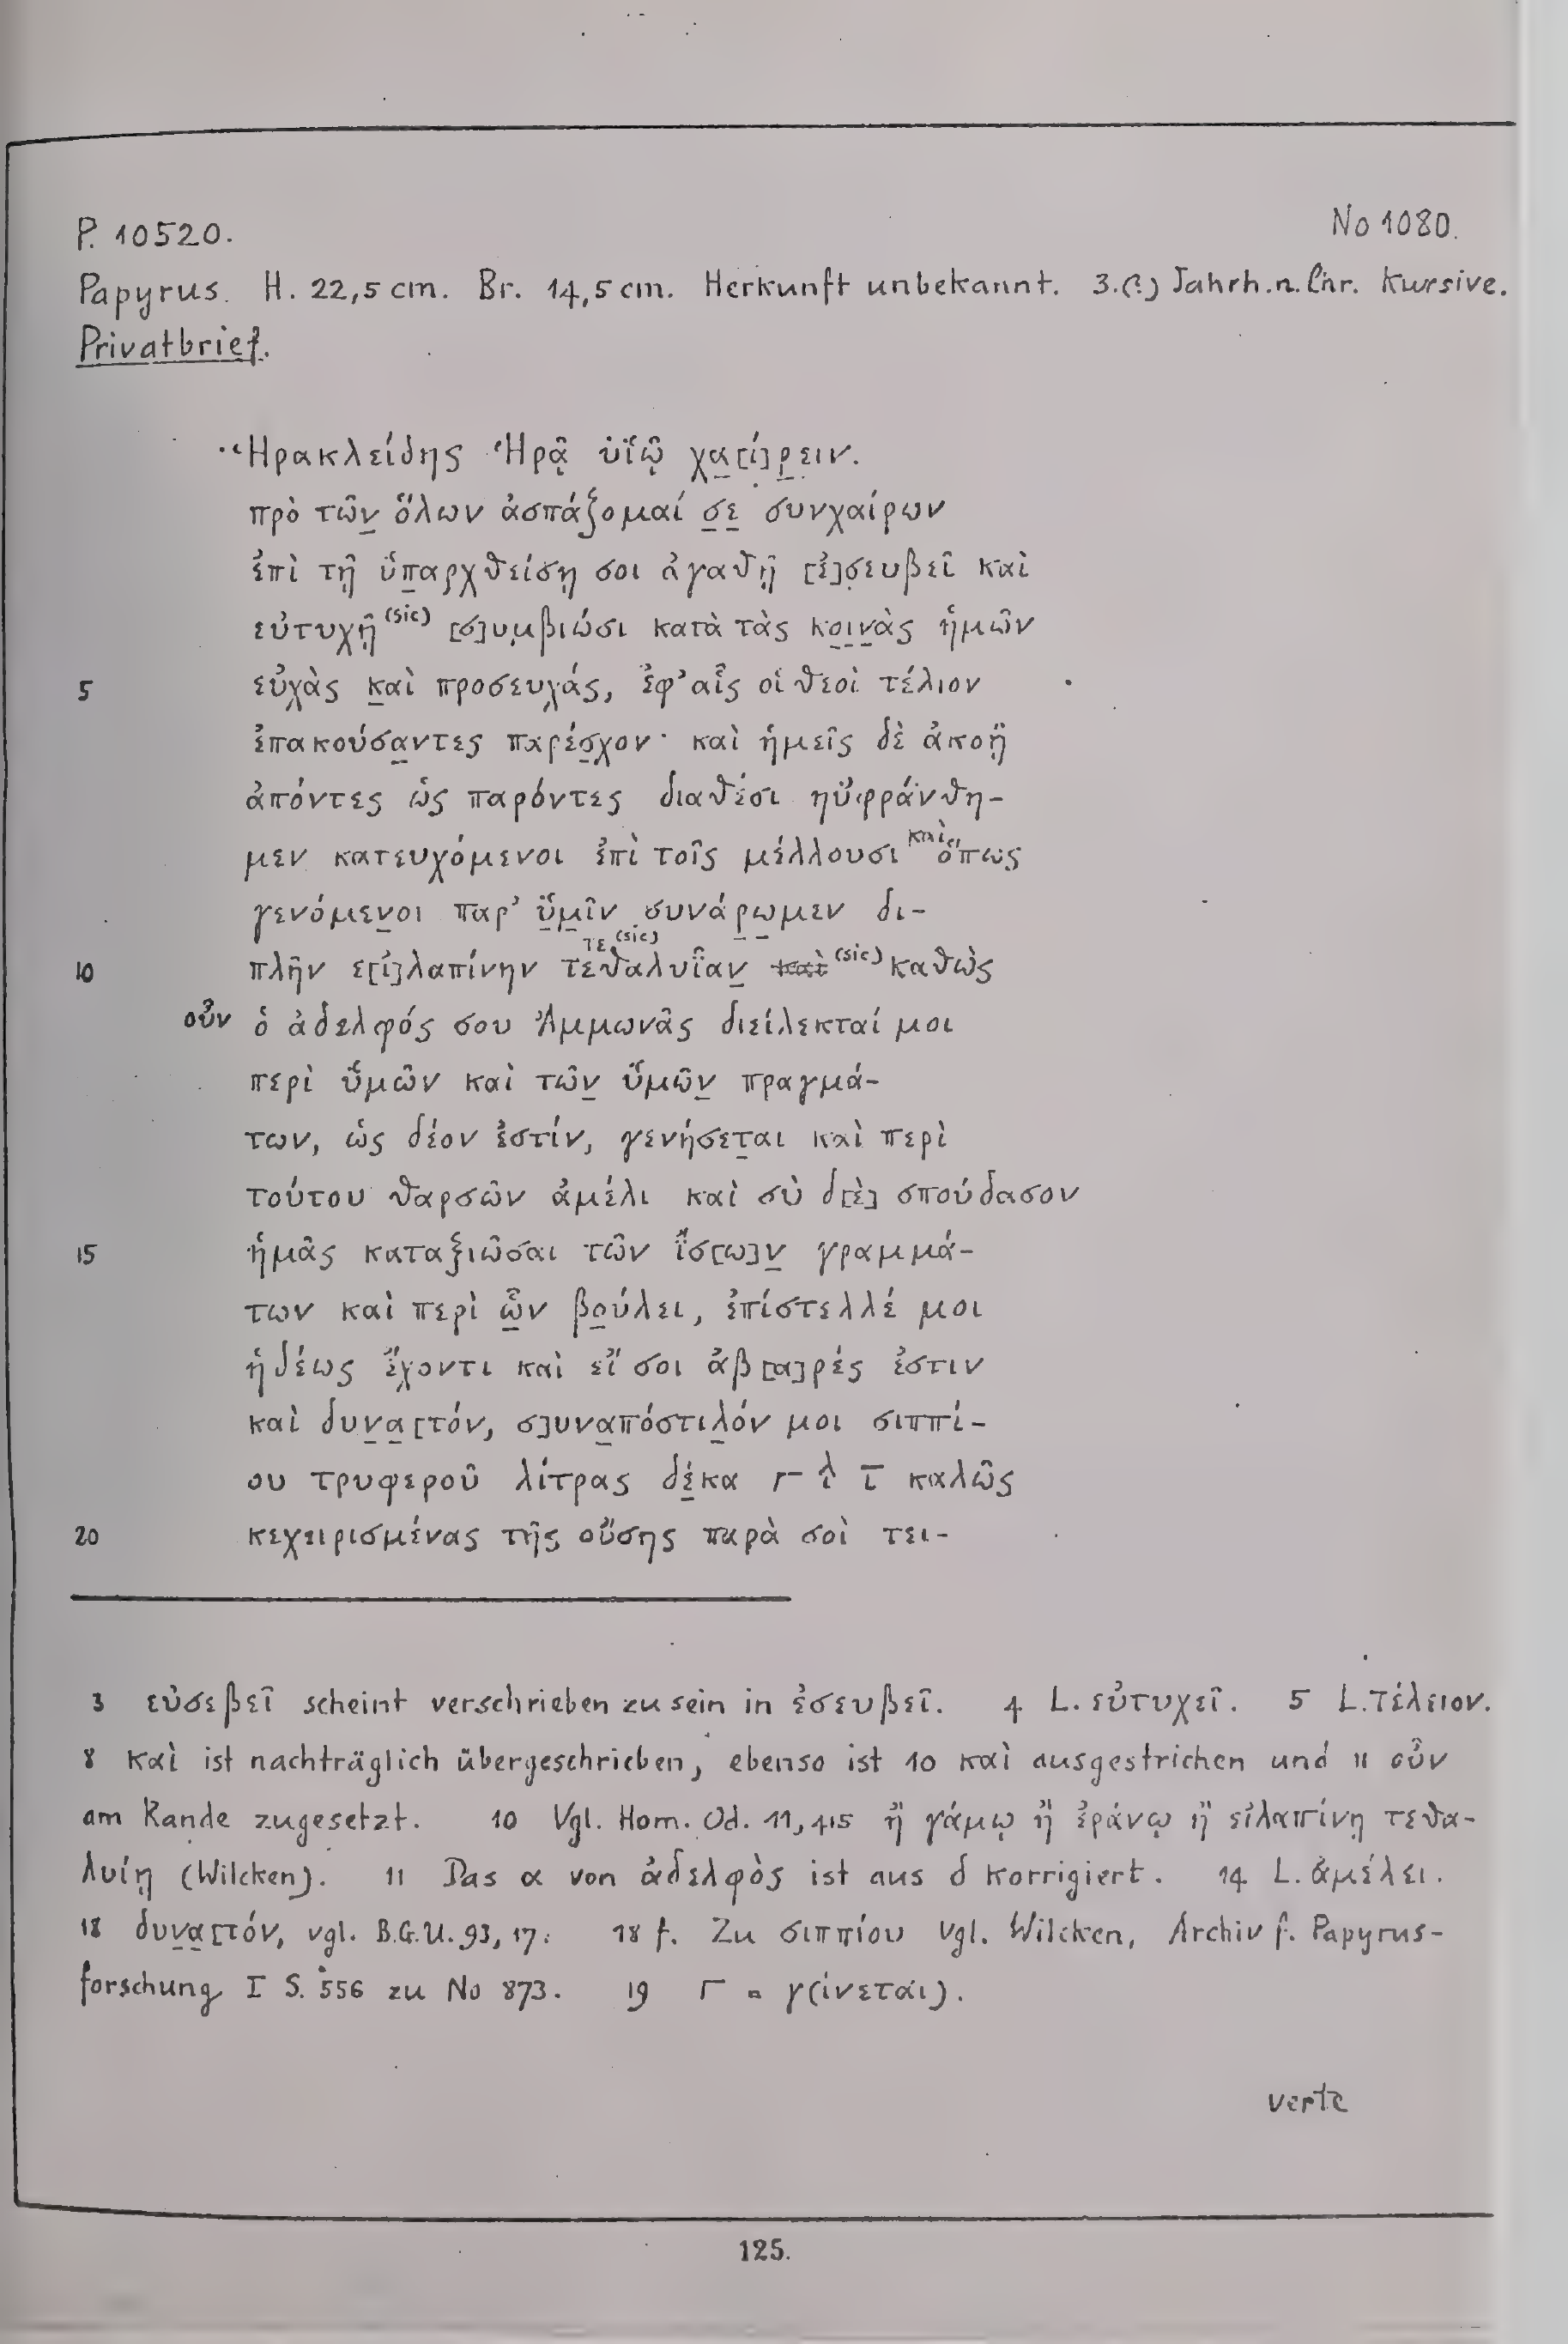 P. 10520. No 1080.
Papyrus. H. 22,5 cm. Br. 14,5 cm. Herkunft unbekannt. 3.(?) Jahrh. n. Chr. Kursive.
Privatbrief.
Ἡρακλείδης Ἡρᾷ ὑϊῷ χα̣[ί]ρ̣ειν.
πρὸ τῶν̣ ὅλων ἀσπάξομαί σ̣ε̣ συνχαίρων
ἐπὶ τῇ ὑ̈π̣αρχθείσῃ σοι ἀγαθῇ [ἐ]σ̣ευβεῖ καὶ
εὐτυχῇ (sic) [σ]υμ̣βιώσι κατὰ τὰς κο̣ι̣ν̣ὰς ἡμῶν
5 εὐχὰς κ̣αὶ προσευχάς, ἐφ’ αἷς οἱ θεοὶ τέλιον
ἐπακούσα̣ντες παρέσ̣χον· καὶ ἡμεῖς δὲ ἀκοῇ
ἀπόντες ὡς παρόντες διαθέσι ηὐφράνθη-
μεν κατευχόμενοι ἐπὶ τοῖς μέλλουσι καὶ ὅπως
γενόμεν̣οι παρ’ ὑ̣̈μ̣ῖν συνάρ̣ω̣μεν δι-
τε (sic)
10 πλῆν ε[ἰ]λαπίνην τεθαλυῖαν̣ καὶ (sic) καθὼς
οὖν ὁ ἀδελφός σου Ἀμμωνᾶς διείλεκταί μοι
περὶ ὑ̈μῶν καὶ τῶν̣ ὑ̈μῶν̣ πραγμά-
των, ὡς δέον ἐστίν, γενήσετ̣αι καὶ περὶ
τούτου θαρσῶν ἀμέλι καὶ σὺ δ[ὲ] σπούδασον
15 ἡμᾶς καταξιῶσαι τῶν ἴ̈σ[ω]ν̣ γραμμά-
των καὶ περὶ ὧ̣ν βο̣ύλει, ἐπίστελλέ μοι
ἡδέως ἔχοντι καὶ εἴ σοι ἀβ[α]ρές ἐστιν
καὶ δυν̣α̣[τόν, σ]υνα̣πόστιλ̣όν μοι σιππί-
ου τρυφεροῦ λίτρας δέ̣κα γ– λ̀ ῑ καλῶς
20 κεχειρισμένας τῆς οὔσης παρὰ σοὶ τει-
3 εὐσεβεῖ scheint verschrieben zu sein in ἐσευβεῖ. 4 L. εὐτυχεῖ. 5 L. τέλειον.
8 καὶ ist nachträglich übergeschrieben, ebenso ist 10 καὶ ausgestrichen und 11 οὖν
am Rande zugesetzt. 10 Vgl. Hom. Od. 11, 415 ἢ γάμῳ ἢ ἐράνῳ ἢ εἰλαπίνῃ τεθα-
λυίῃ (Wilcken). 11 Das α von ἀδελφὸς ist aus δ korrigiert. 14 L. ἀμέλει.
18 δυν̣α̣[τόν, vgl. B.G.U. 93, 17. 18 f. Zu σιππίου vgl. Wilcken, Archiv f. Papyrus-
forschung I S. 556 zu No 873. 19 Γ = γ(ίνεται).
verte
125.